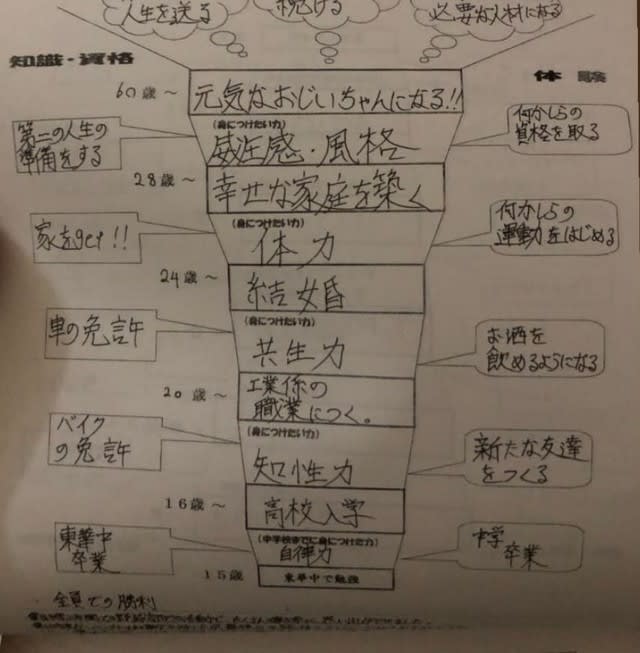 人生を送る
稼げる
必要な人材になる
知識・資格
体験
60歳～
元気なおじいちゃんになる!!
(身につけたい力)
威圧感・風格
第二の人生の
準備をする
何かしらの
資格を取る
28歳～
幸せな家庭を築く
(身につけたい力)
体力
家をget!!
何かしらの
運動をはじめる
24歳～
結婚
(身につけたい力)
共生力
車の免許
お酒を
飲めるようになる
20歳～
工業係の
職業につく。
(身につけたい力)
知性力
バイク
の免許
新たな友達
をつくる
16歳～
高校入学
(中学校までに身につけた力)
自律力
東華中
卒業
中学
卒業
15歳
東華中で勉強
全員での勝利